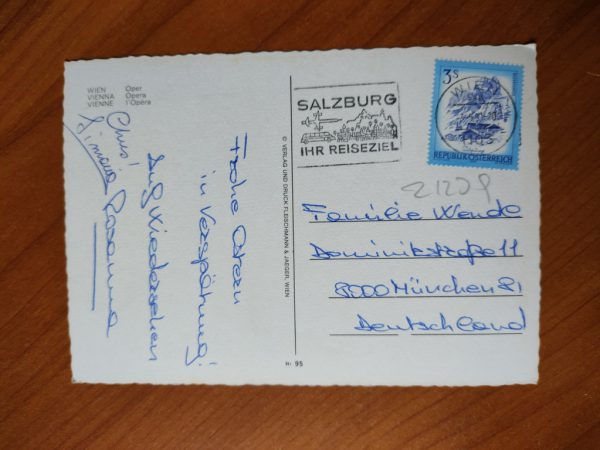 WIEN Oper
VIENNA Opera
VIENNE l'Opéra
Frohe Ostern
in Verspätung!
Auf Wiedersehen
Rosanna
© VERLAG UND DRUCK FLEISCHMANN & JAEGER, WIEN
Nr 95
SALZBURG
IHR REISEZIEL
3 S
WIEN
REPUBLIK ÖSTERREICH
Familie Wende
Dominikstraße 11
8000 München 81
Deutschland